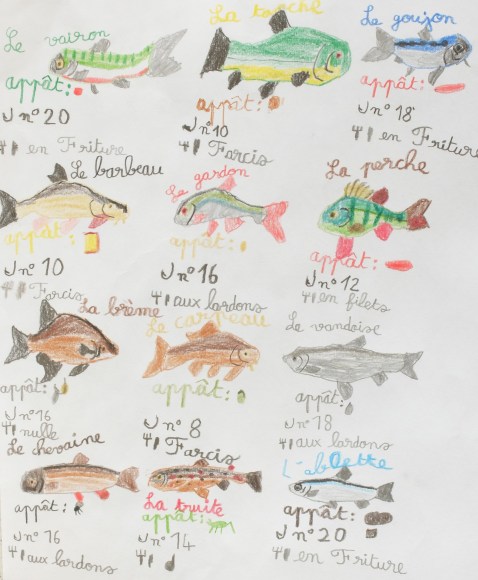 Le vairon
appât:
n°20
en Friture
La tanche
appât:
n°10
Farcis
Le goujon
appât:
n°18
en Friture
Le barbeau
appât:
n°10
Farcis
Le gardon
appât:
n°16
aux lardons
La perche
appât:
n°12
en filets
La brème
appât:
n°16
nulle
Le carpeau
appât:
n°8
Farcis
Le vandoise
appât:
n°18
aux lardons
Le chevaine
appât:
n°16
aux lardons
La truite
appât:
n°14
L'ablette
appât:
n°20
en Friture